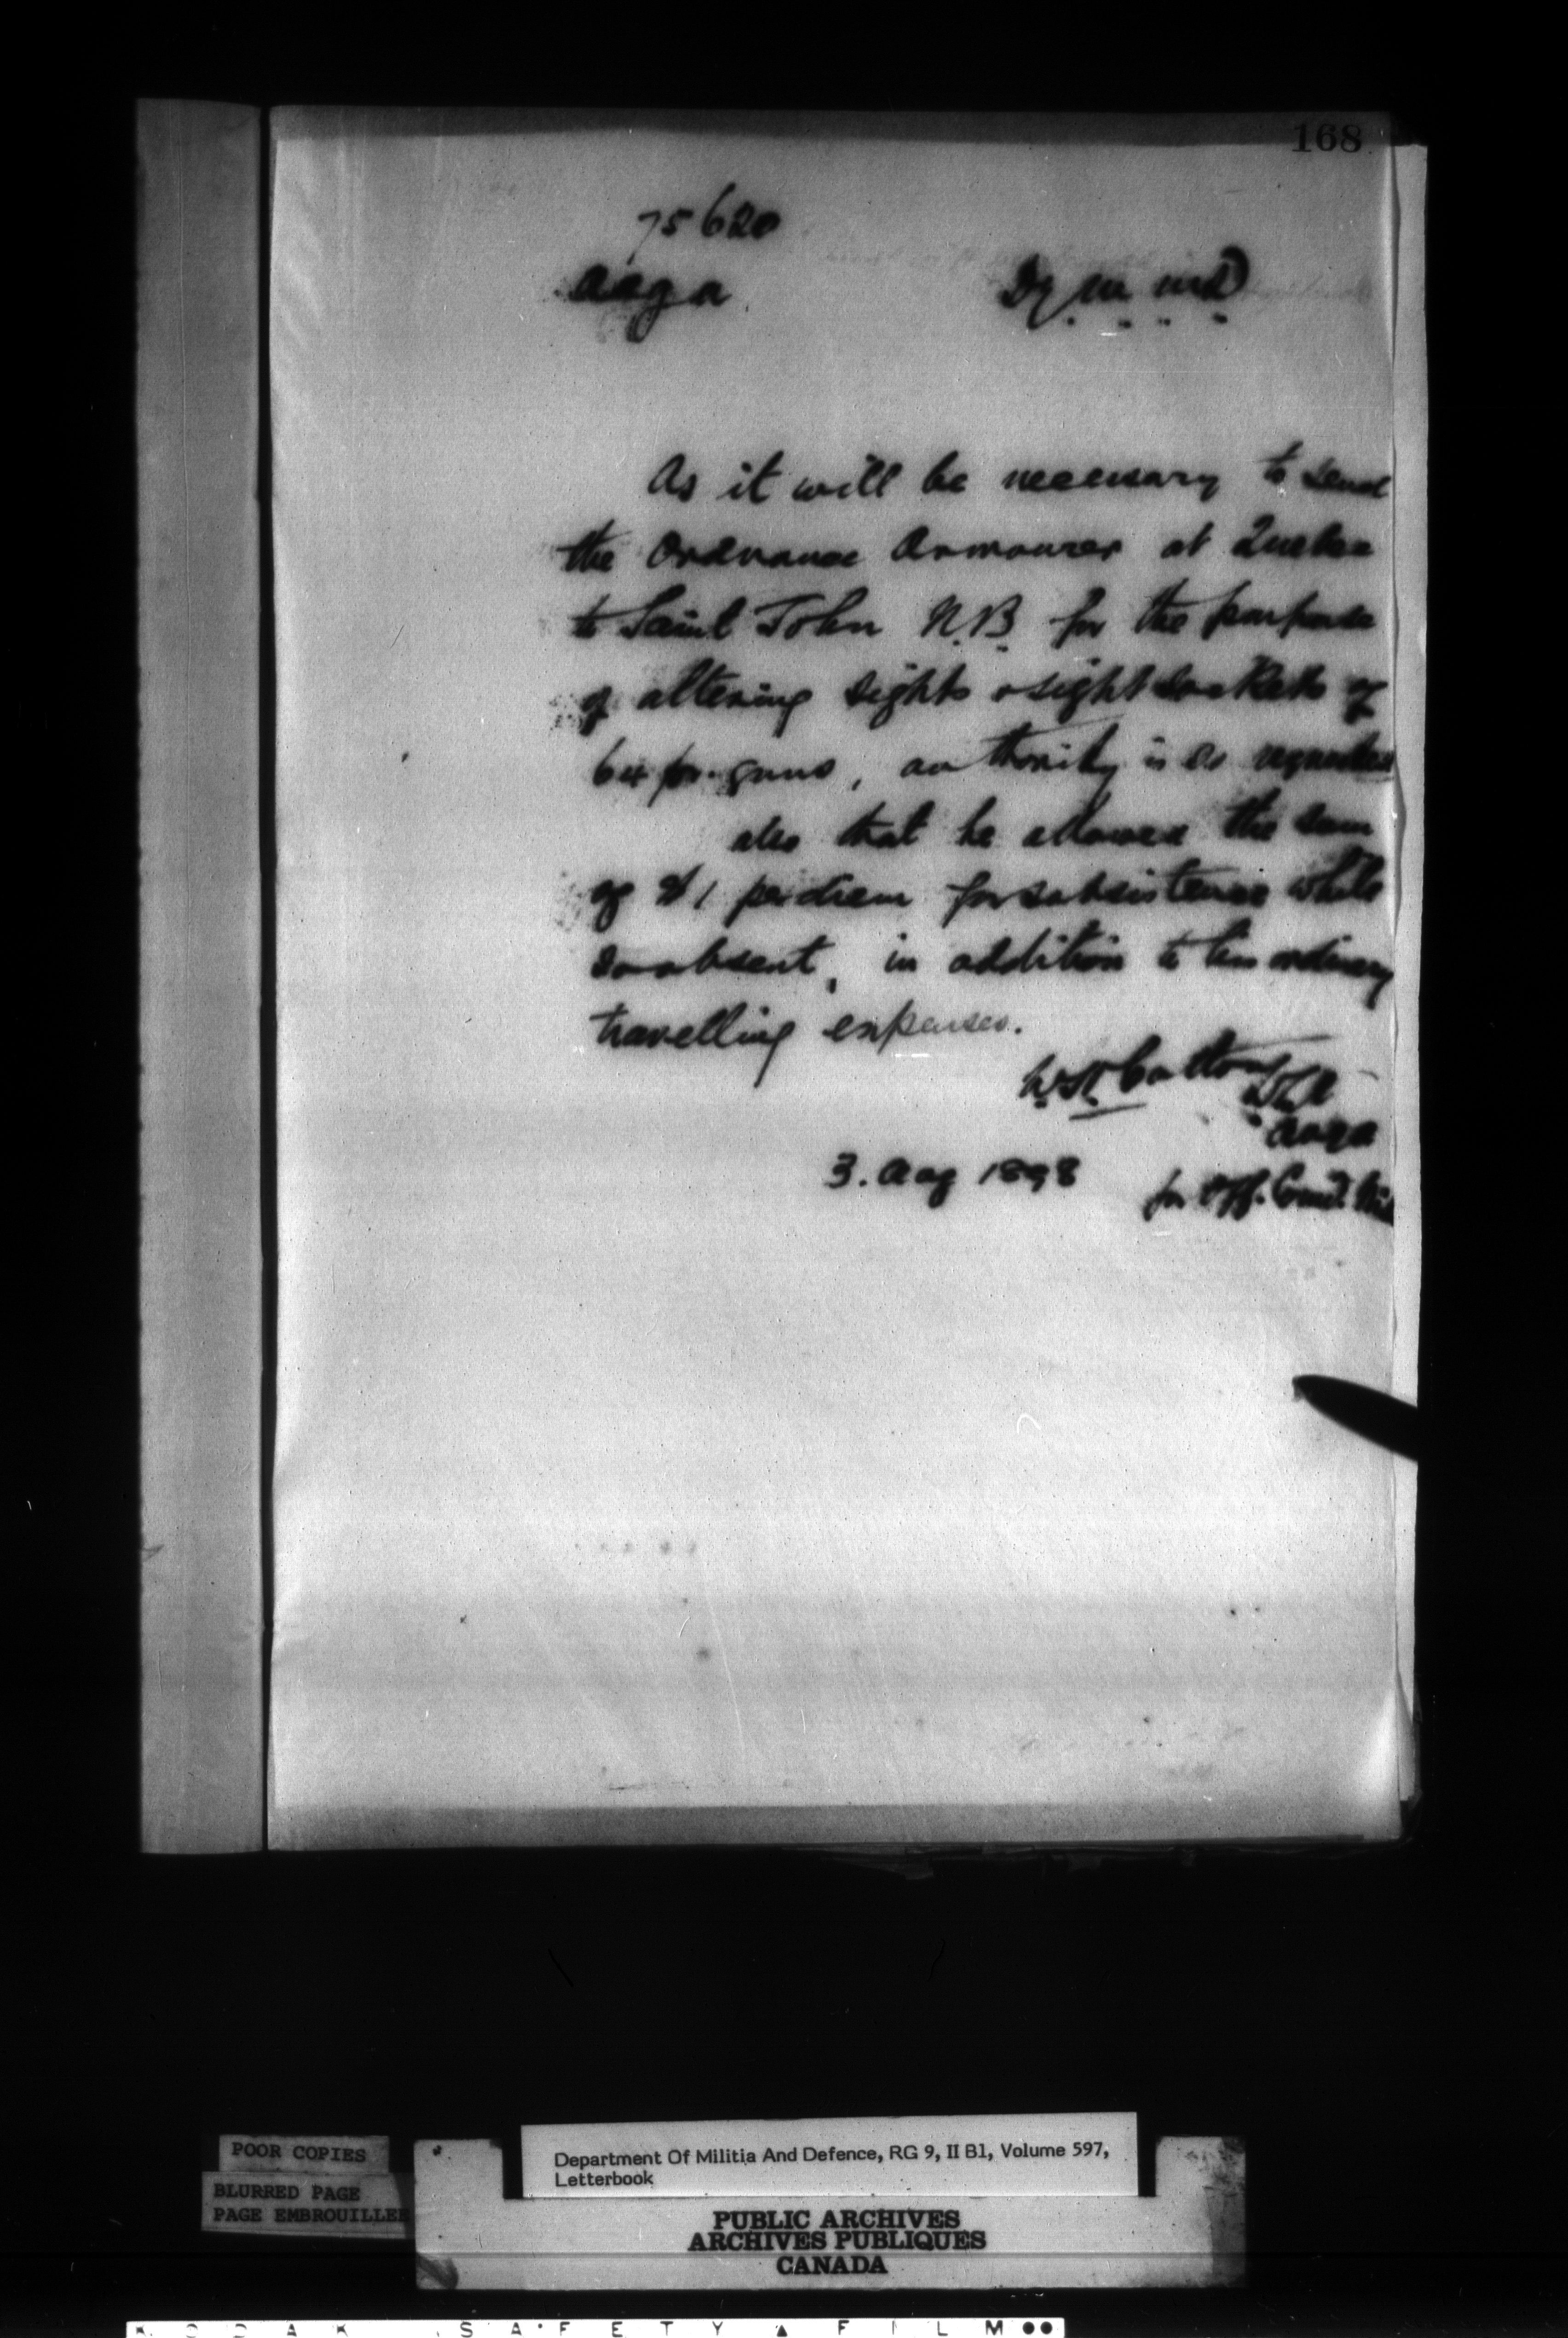 168
75620
aaga
Dy. m. m&D
As it will be necessary to send
the Ordnance Armourer at Quebec
to Saint John N.B. for the purpose
of altering sights & sight sockets of
64 pr. guns, authority is so requested
also that he allowed the sum
of $1 per diem for subsistence while
so absent, in addition to his ordinary
travelling expenses.
Cotton
aaga
3. Aug 1898
for Off. Comd. Mil
POOR COPIES
BLURRED PAGE
PAGE EMBROUILLEE
Department Of Militia And Defence, RG 9, II B1, Volume 597,
Letterbook
PUBLIC ARCHIVES
ARCHIVES PUBLIQUES
CANADA
KODAK SAFETY ▲ FILM ●●